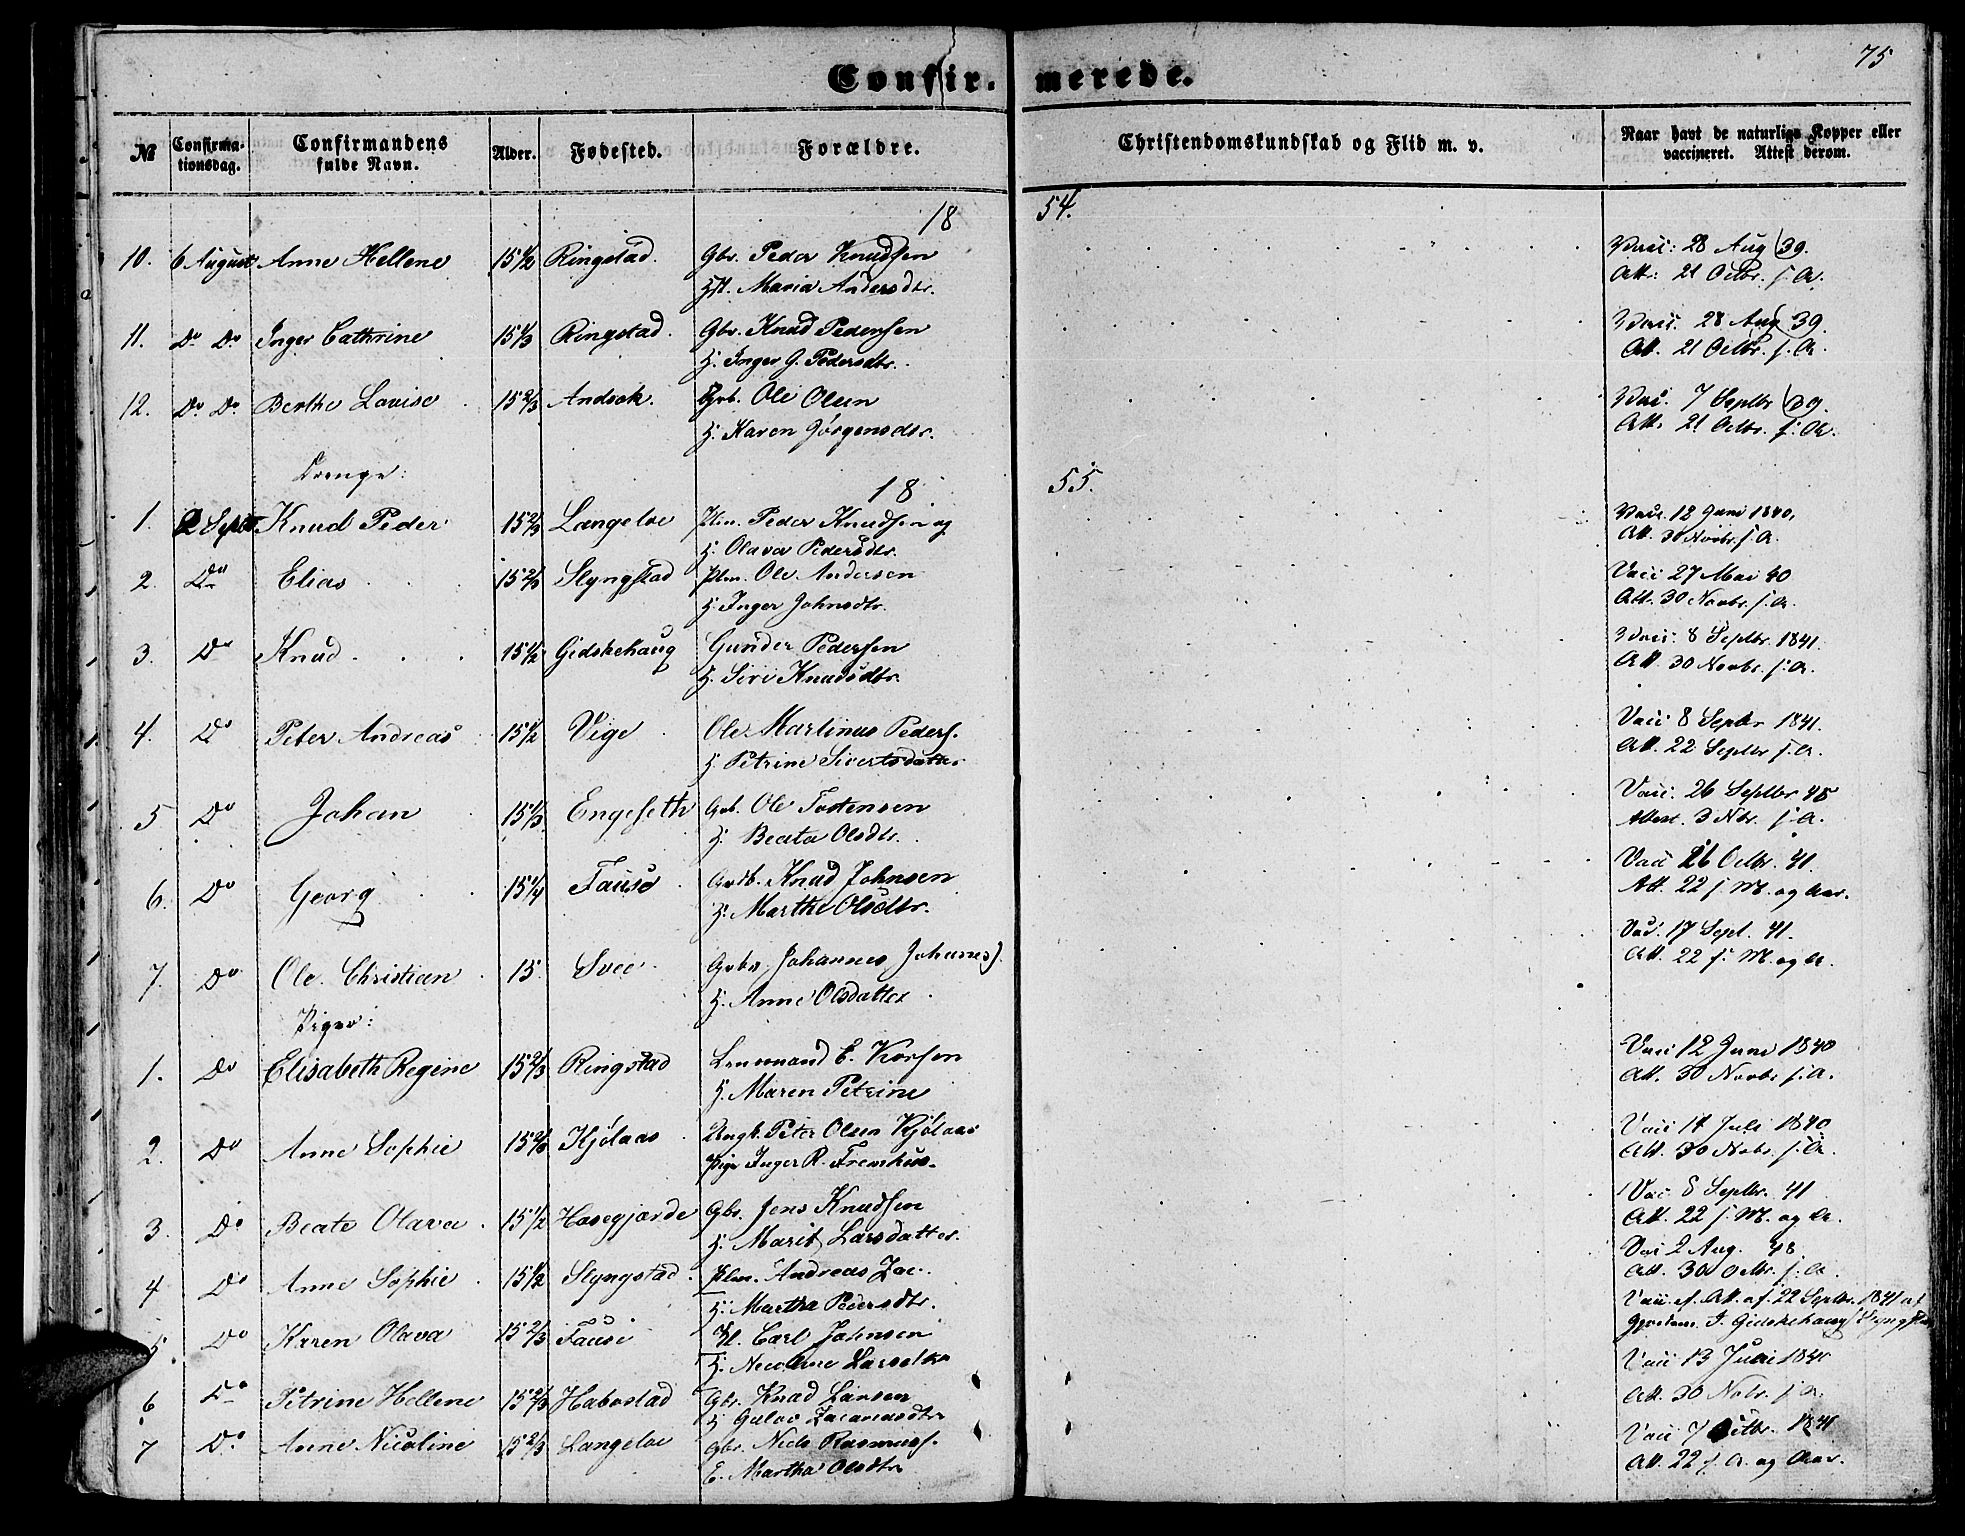 75
Confir- merede.
№ Confirma-tionsdag. Confirmandens fulde Navn. Alder. Fødested. Forældre. Christendomskundskab og Flid m. v. Naar havt de naturlige Kopper eller vaccineret. Attest derom.
18 54.
10. 6 August Anne Hellene 15 1/2 Ringstad. Gbr. Peder Knudsen Vacc: 28 Aug 39.
Maria Andersdtr. Att: 21 Octbr. s. A.
11. Do Do Inger Cathrine 15 1/3 Ringstad. Gbr. Knud Pedersen Vacc. 28 Aug 39.
H. Inger G. Pedersdtr. Att. 21 Octbr. s. A.
12. Do Do Berthe Lovise 15 2/3 Andsok. Gvb. Ole Olsen Vacc. 7 Septbr 39.
H. Karen Jørgensdtr. Att. 21 Octbr. s. A.
Drenge:
18 55.
1. 2 Septbr Knud Peder 15 2/3 Langeloe Plm. Peder Knudsen og Vacc. 12 Juni 1840,
H. Olava Pedersdtr. Att. 30 Novbr. s. A.
2. Do Elias 15 2/3 Slyngstad Plm. Ole Andersen Vacc 27 Mai 40
H. Inger Johnsdtr. Att. 30 Novbr. s. A.
3. Do Knud 15 1/2 Gidskehaug Gunder Pedersen Vacc: 8 Septbr. 1841.
H. Siri Knudsdtr. Att. 30 Novbr. s. A.
4. Do Peter Andreas 15 1/2 Vige Ole Martinus Peders. Vacc 8 Septbr 1841.
H. Petrine Sivertsdatter Att. 22 Septbr s. A.
5 Do Johan 15 1/3 Engeseth Gvb. Ole Tostensen Vacc. 26 Septbr 45
H. Beata Olsdtr. Attest. 3 Nbr. s. A.
6. Do Georg 15 1/4 Fause Gvdb. Knud Johnsen Vacc 26 Octbr. 41.
H. Marthe Olsdtr. Att. 22 s. M. og Aar.
7. Do Ole Christian 15. Svee Gvbr. Johannes Johannes. Vac. 17 Sept. 41.
H. Anne Olsdatter Att. 22 s. M. og A.
Piger:
1. Do Elisabeth Regine 15 2/3 Ringstad Lensmand E. Korsen Vacc 12 Juni 1840
H. Maren Petrine Att. 30 Novbr s. A.
2. Do Anne Sophie 15 2/3 Kjølaas Ungk. Peter Olsen Kjølaas Vacc 14 Juli 1840
Pige Inger R. Fremhus. Att. 30 Nobr. s. A.
3. Do Beate Olava 15 1/2 Hovegjærde Gbr. Jens Knudsen Vac. 8 Septbr. 41
H. Marit Larsdatter Att. 22 s. M. og A.
4 Do Anne Sophie 15 1/2 Slyngstad. Plm. Andreas Zac. Vac 2 Aug. 48.
H. Martha Pedersdtr. Att. 30 Octbr. s. A.
5. Do Karen Olava 15 2/3 Fause Carl Johnsen Vacc ef. Att. af. 22 Septbr. 1841 af
H. Nicoline Larsdtr Gjordem. I. Gidskehaug Slyngstad
6 Do Petrine Hellene 15 2/3 Habostad Gbr. Knud Larsen Vacc 13 Juni 1841
Zacariasdtr Att. 30 Nobr. s. A.
7 Do Anne Nicoline 15 2/3 Langeloe Gbr. Niels Rasmuss. Vacc 7 Octbr. 1841
E. Martha Olsdtr Att. 22 s. A. og Aar.